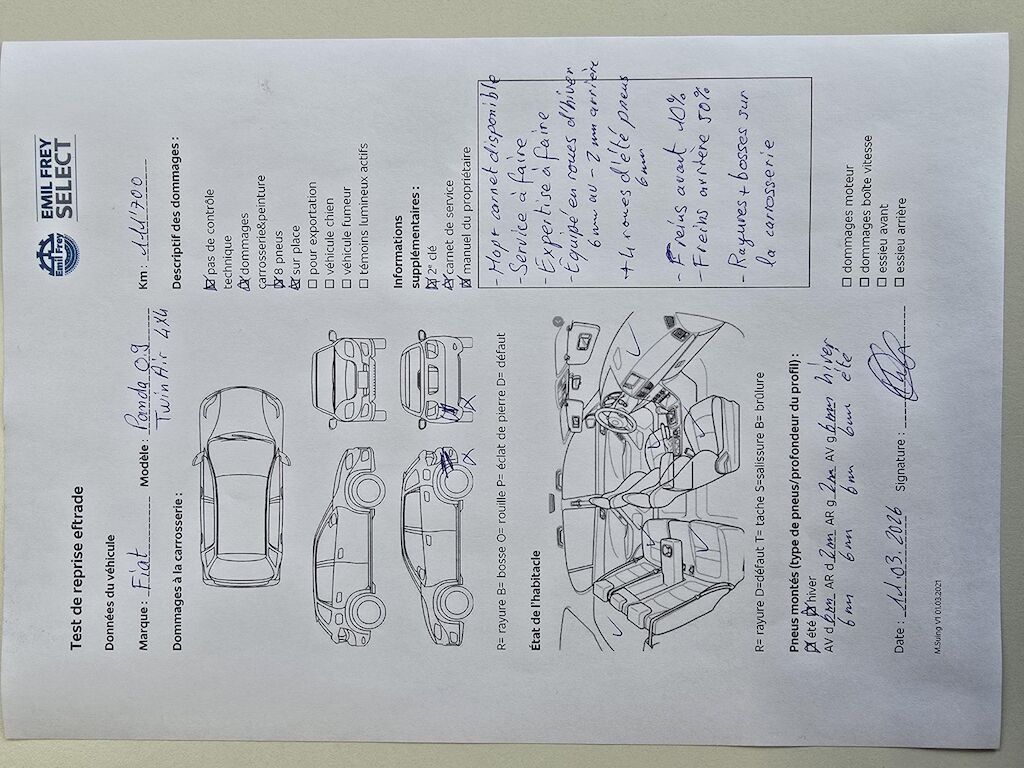 Test de reprise eftrade
Emil Frey
EMIL FREY
SELECT
Données du véhicule
Marque : Fiat Modèle : Panda 0.9 Km : 111'700
Twin Air 4x4
Dommages à la carrosserie :
R= rayure B= bosse O= rouille P= éclat de pierre D= défaut
Descriptif des dommages :
☒ pas de contrôle
technique
☒ dommages
carrosserie&peinture
☒ 8 pneus
☒ sur place
☐ pour exportation
☐ véhicule chien
☐ véhicule fumeur
☐ témoins lumineux actifs
Informations
supplémentaires :
☒ 2° clé
☒ carnet de service
☒ manuel du propriétaire
État de l'habitacle
R= rayure D=défaut T= tache S=salissure B= brûlure
- Mop + carnet disponible
- Service à faire
- Expertise à faire
- Équipé en roues d'hiver
6mm av - 2mm arrière
+ 4 roues d'été pneus
6mm
- Freins avant 10%
- Freins arrière 50%
- Rayures + bosses sur
la carrosserie
Pneus montés (type de pneus/profondeur du profil) :
☒ été ☒ hiver
AV d 6mm AR d 2mm AR g 2mm AV g 6mm hiver
6mm 6mm 6mm 6mm été
☐ dommages moteur
☐ dommages boîte vitesse
☐ essieu avant
☐ essieu arrière
Date : 11.03.2026 Signature :
M.Suing V1 01.03.2021